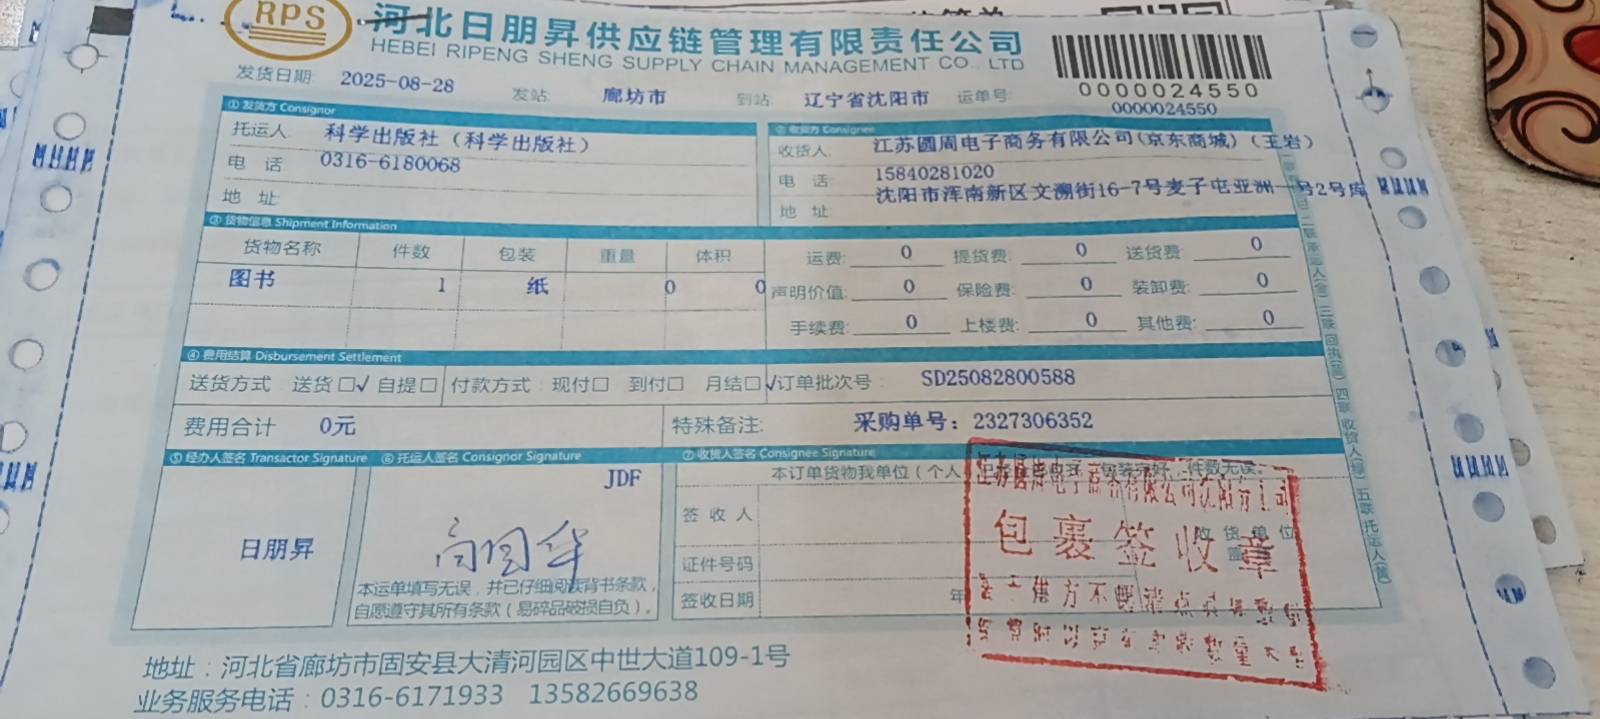 RPS
河北日朋昇供应链管理有限责任公司
HEBEI RIPENG SHENG SUPPLY CHAIN MANAGEMENT CO., LTD
0000024550
0000024550
发货日期 2025-08-28 发站 廊坊市 到站 辽宁省沈阳市 运单号
① 发货方 Consignor
② 收货方 Consignee
托运人 科学出版社（科学出版社）
收货人 江苏圆周电子商务有限公司(京东商城)（王岩）
电 话 0316-6180068
电 话 15840281020
地 址
地 址 沈阳市浑南新区文溯街16-7号麦子屯亚洲一号2号库
③ 货物信息 Shipment Information
货物名称 件数 包装 重量 体积
运费: 0 提货费: 0 送货费: 0
图书 1 纸 0 0
声明价值: 0 保险费: 0 装卸费: 0
手续费: 0 上楼费: 0 其他费: 0
④ 费用结算 Disbursement Settlement
送货方式: 送货□√ 自提□ 付款方式: 现付□ 到付□ 月结□√ 订单批次号: SD25082800588
费用合计 0元 特殊备注: 采购单号：2327306352
⑤ 经办人签名 Transactor Signature ⑥ 托运人签名 Consignor Signature ⑦ 收货人签名 Consignee Signature
本订单货物我单位（个人
件数无误
JDF
签 收 人
收 货 单 位
日朋昇
证件号码
本运单填写无误，并已仔细阅读背书条款，
自愿遵守其所有条款（易碎品破损自负）。
签收日期 年
包裹签收章
地址：河北省廊坊市固安县大清河园区中世大道109-1号
业务服务电话：0316-6171933 13582669638